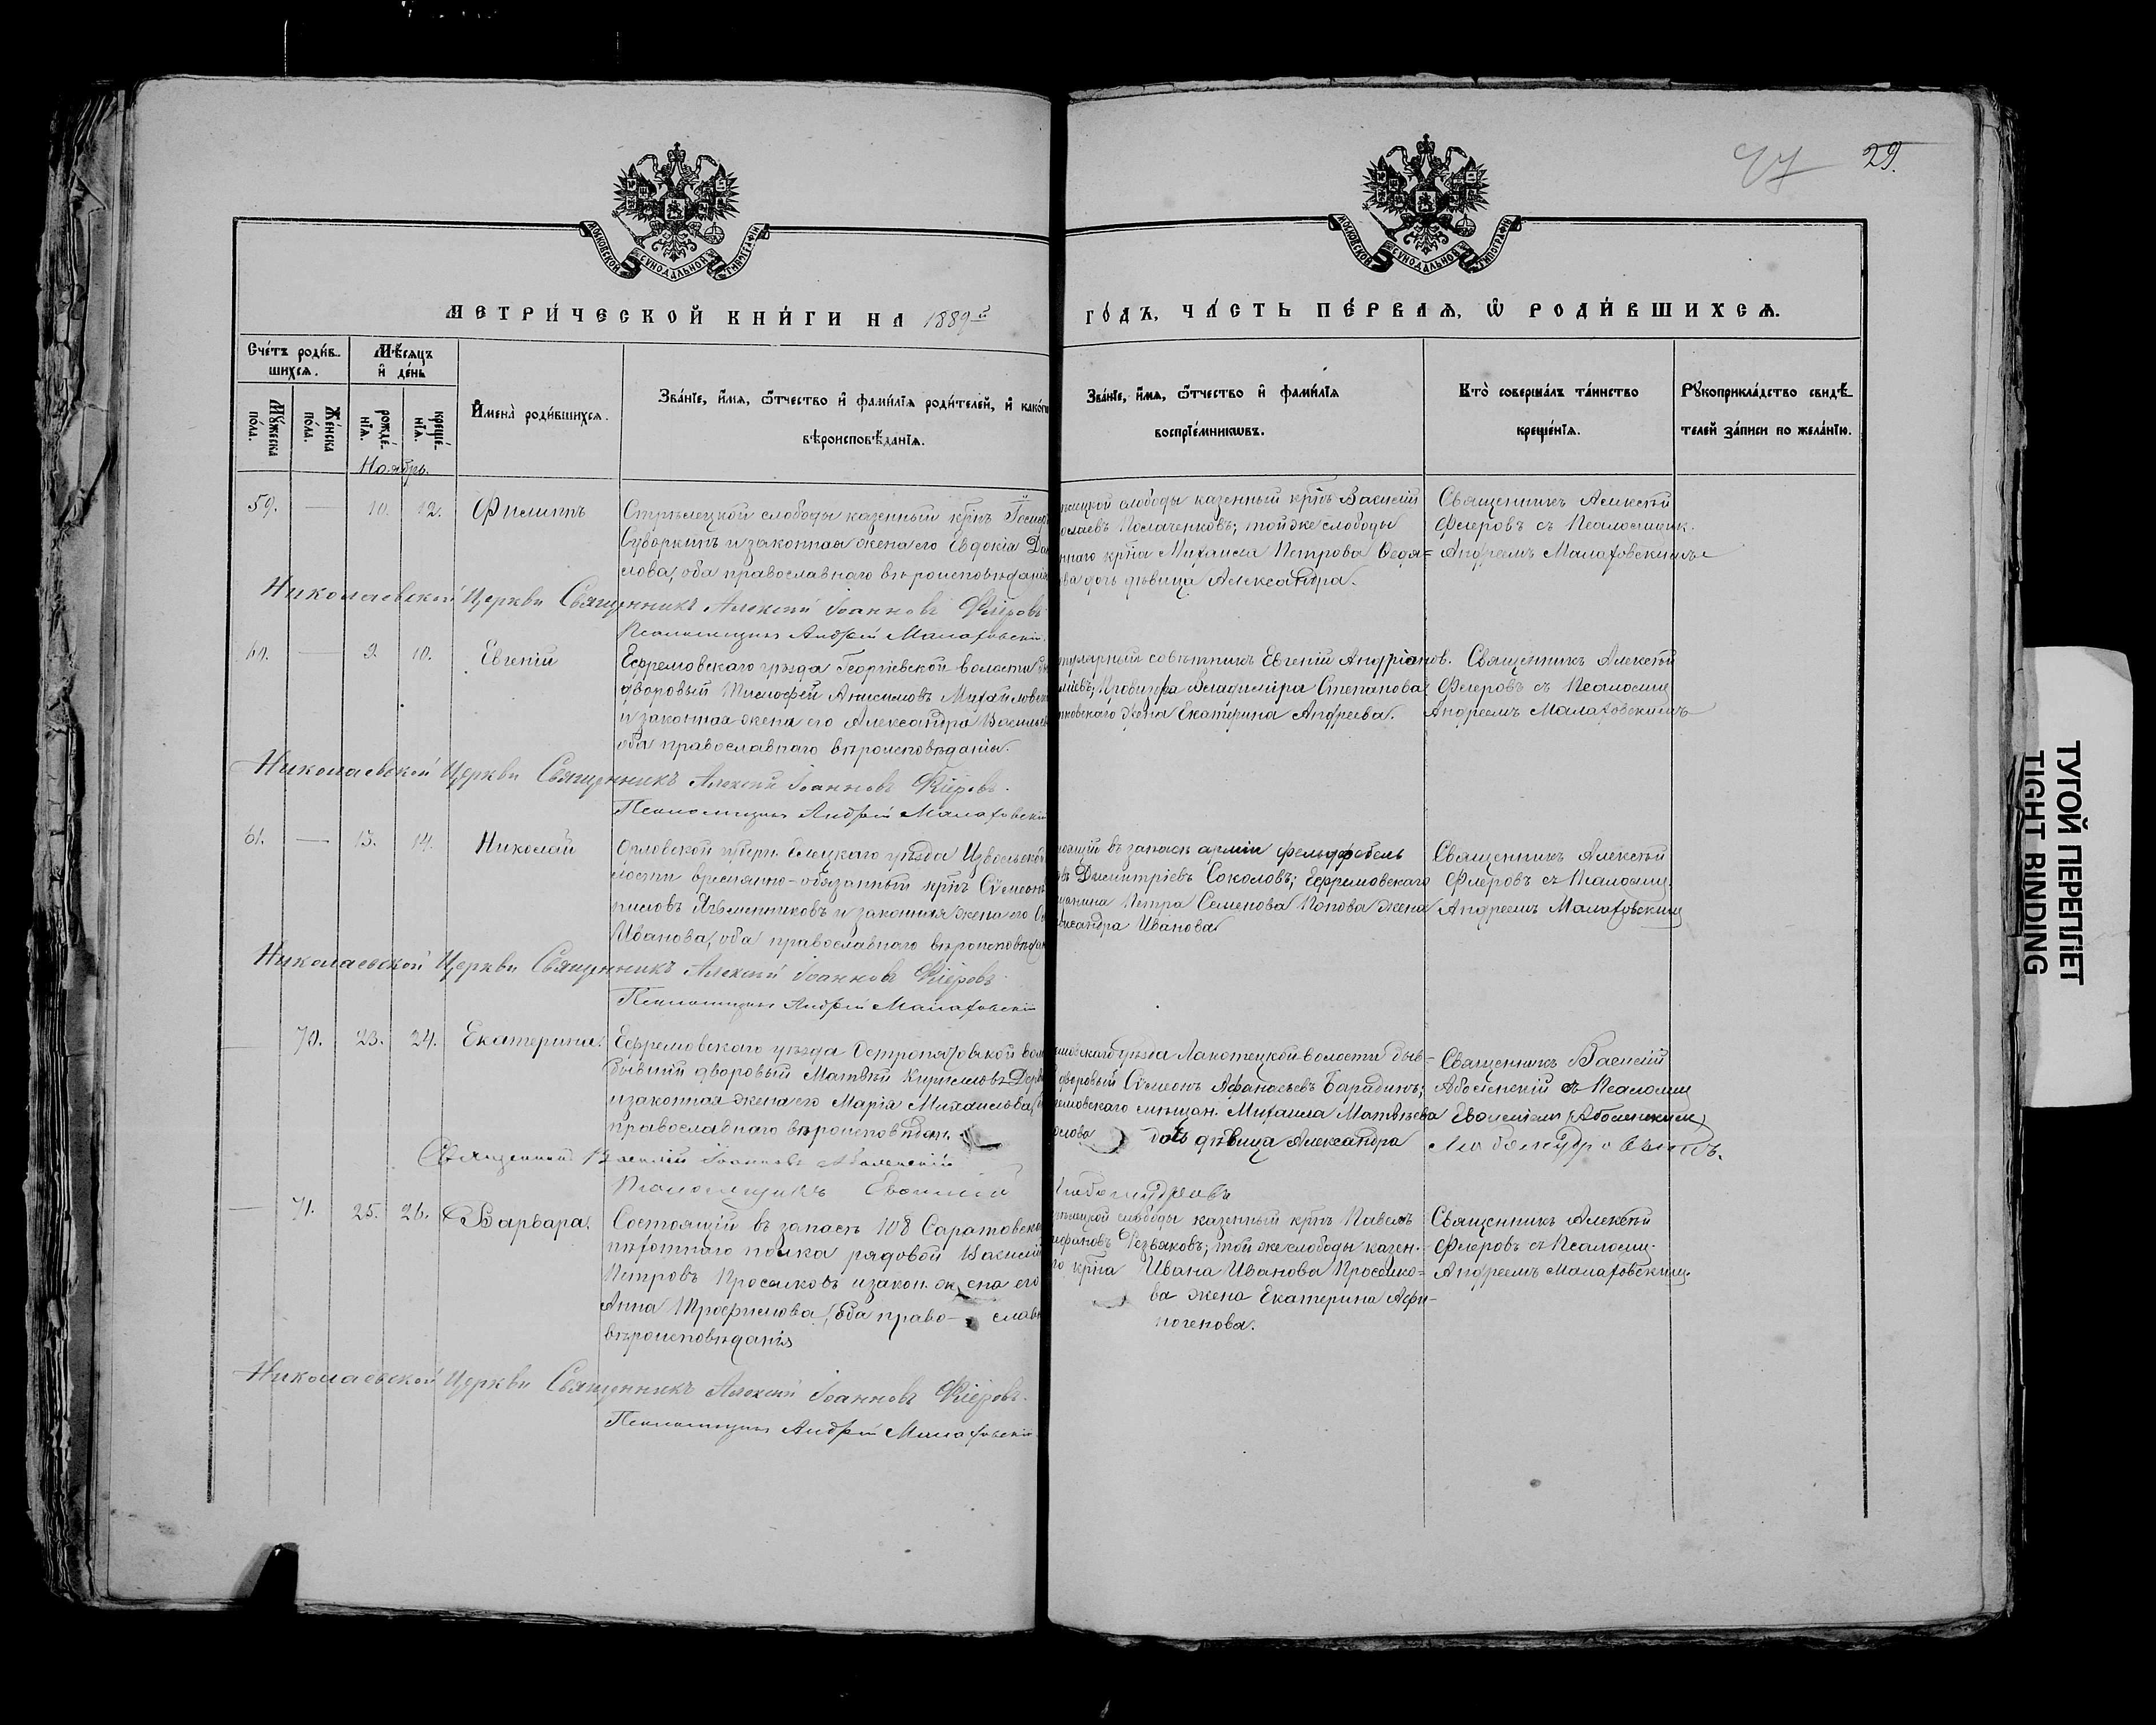 29.
МОСКОВСКОЙ СУНОДАЛЬНОЙ ТИПОГРАФІИ
МОСКОВСКОЙ СУНОДАЛЬНОЙ ТИПОГРАФІИ
МЕТРИ́ЧЕСКОЙ КНИ́ГИ НА 1889й
ГО́ДЪ, ЧА́СТЬ ПЕ́РВАѦ, Ѡ РОДИ́ВШИХСѦ.
Сче́тъ роди́вшихсѧ.
Мѣ́сѧцъ и де́нь
Мꙋ́жеска по́ла.
Же́нска по́ла.
рожде́нїѧ.
креще́нїѧ.
Ноябрь.
Имена̀ роди́вшихсѧ.
Зва́нїе, и́мѧ, ѻ́тчество и фами́лїѧ роди́телей, и како́г
вѣроисповѣ́данїѧ.
Зва́нїе, и́мѧ, ѻ́тчество и фами́лїѧ
воспрїе́мникѡвъ.
Кто̀ соверша́лъ та́инство
креще́нїѧ.
Рꙋкоприкла́дство свидѣ́телей за́писи по жела́нїю.
59. — 10. 12. Филиппъ
Стрѣлецкой слободы казенный крпъ
Суворкинъ и законная жена его Евдокія
слова, оба православнаго вѣроисповѣданія
лецкой слободы казенный крпъ Василій
той же слободы
ннаго крпа Михаила Петрова
ва дочь дѣвица Александра.
Священникъ Алексѣй
Флеровъ съ Псаломщик.
Андреемъ Малафовскимъ
Николаевской Церкви Священникъ Алексѣй Іоанновъ Флеровъ
Псаломщикъ Андрей Малафовскій
60. — 9. 10. Евгеній
Ефремовскаго уѣзда Георгіевской волости
дворовый Тимофей Анисимовъ Михайловъ
и законная жена его Александра Васильев
оба православнаго вѣроисповѣданія.
тулярный совѣтникъ Евгеній Андріанов.
Провизора Владиміра Степанова
жена Екатерина Андреева.
Священникъ Алексѣй
Флеровъ съ Псаломщ
Андреемъ Малафовскимъ
Николаевской Церкви Священникъ Алексѣй Іоанновъ Флеровъ.
Псаломщикъ Андрей Малафовскій
61. — 13. 14. Николай
Орловской губерн. Елецкаго уѣзда
лости временно-обязанный крпъ Сѵмеонъ
и законная жена его
Иванова, оба православнаго вѣроисповѣдан
оящій въ запасѣ арміи фельдфебель
Димитріевъ Соколовъ; Ефремовскаго
щанина Петра Семенова Попова жена
лександра Иванова
Священникъ Алексѣй
Флеровъ съ Псаломщ.
Андреемъ Малафовским
Николаевской Церкви Священникъ Алексѣй Іоанновъ Флеровъ.
Псаломщикъ Андрей Малафовскій
— 70. 23. 24. Екатерина.
Ефремовскаго уѣзда Остропятовской вол
бывшій дворовый Матвѣй Кирилловъ
и законная жена его Марія Михайлова
православнаго вѣроисповѣдан.
емовскаго уѣзда Лакотецкой волости быв-
дворовый Сѵмеонъ Афанасьевъ Барадинъ;
ремовскаго мѣщан. Михаила Матвѣева
дочь дѣвица Александра
Священникъ Василій
съ Псаломщ
Любомудровымъ.
Священникъ Василій Іоанновъ
Псаломщикъ
Любомудровъ
— 71. 25. 26. Варвара.
Состоящій въ запасѣ 108 Саратовска
пѣхотнаго полка рядовой Василій
Петровъ Просолковъ и закон. жена его
Анна Трофимова, оба право- слав
вѣроисповѣданія
лецкой слободы казенный крпъ Павелъ
той же слободы казен-
го крпа Ивана Иванова Просолко-
ва жена Екатерина Афи-
ногенова.
Священникъ Алексѣй
Флеровъ съ Псаломщ.
Андреемъ Малафовским.
Николаевской Церкви Священникъ Алексѣй Іоанновъ Флеровъ.
Псаломщикъ Андрей Малафовскій
ТУГОЙ ПЕРЕПЛЕТ
TIGHT BINDING